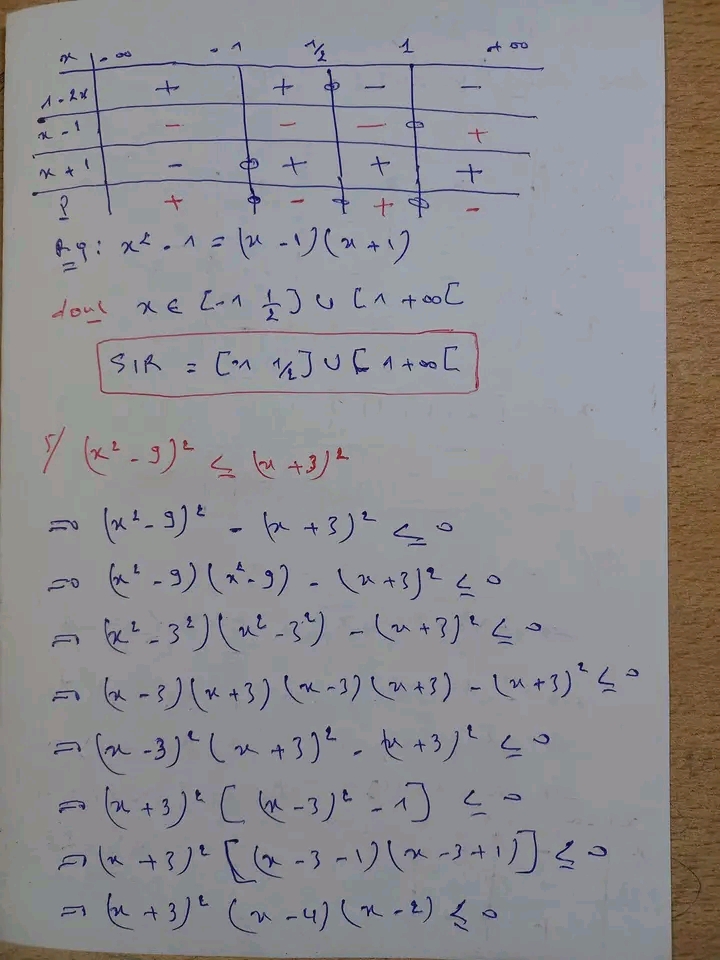 x | -∞ -1 1/2 1 +∞
1-2x + + 0 - -
x-1 - - - 0 +
x+1 - 0 + + +
P + 0 - 0 + 0 -
Rq: x² - 1 = (x - 1)(x + 1)
donc x ∈ [-1 1/2] ∪ [1 +∞[
SIR = [-1 1/2] ∪ [1 +∞[
5/ (x² - 9)² ≤ (x + 3)²
⇒ (x² - 9)² - (x + 3)² ≤ 0
⇒ (x² - 9)(x² - 9) - (x + 3)² ≤ 0
⇒ (x² - 3²)(x² - 3²) - (x + 3)² ≤ 0
⇒ (x - 3)(x + 3)(x - 3)(x + 3) - (x + 3)² ≤ 0
⇒ (x - 3)² (x + 3)² - (x + 3)² ≤ 0
⇒ (x + 3)² [(x - 3)² - 1] ≤ 0
⇒ (x + 3)² [(x - 3 - 1)(x - 3 + 1)] ≤ 0
⇒ (x + 3)² (x - 4)(x - 2) ≤ 0